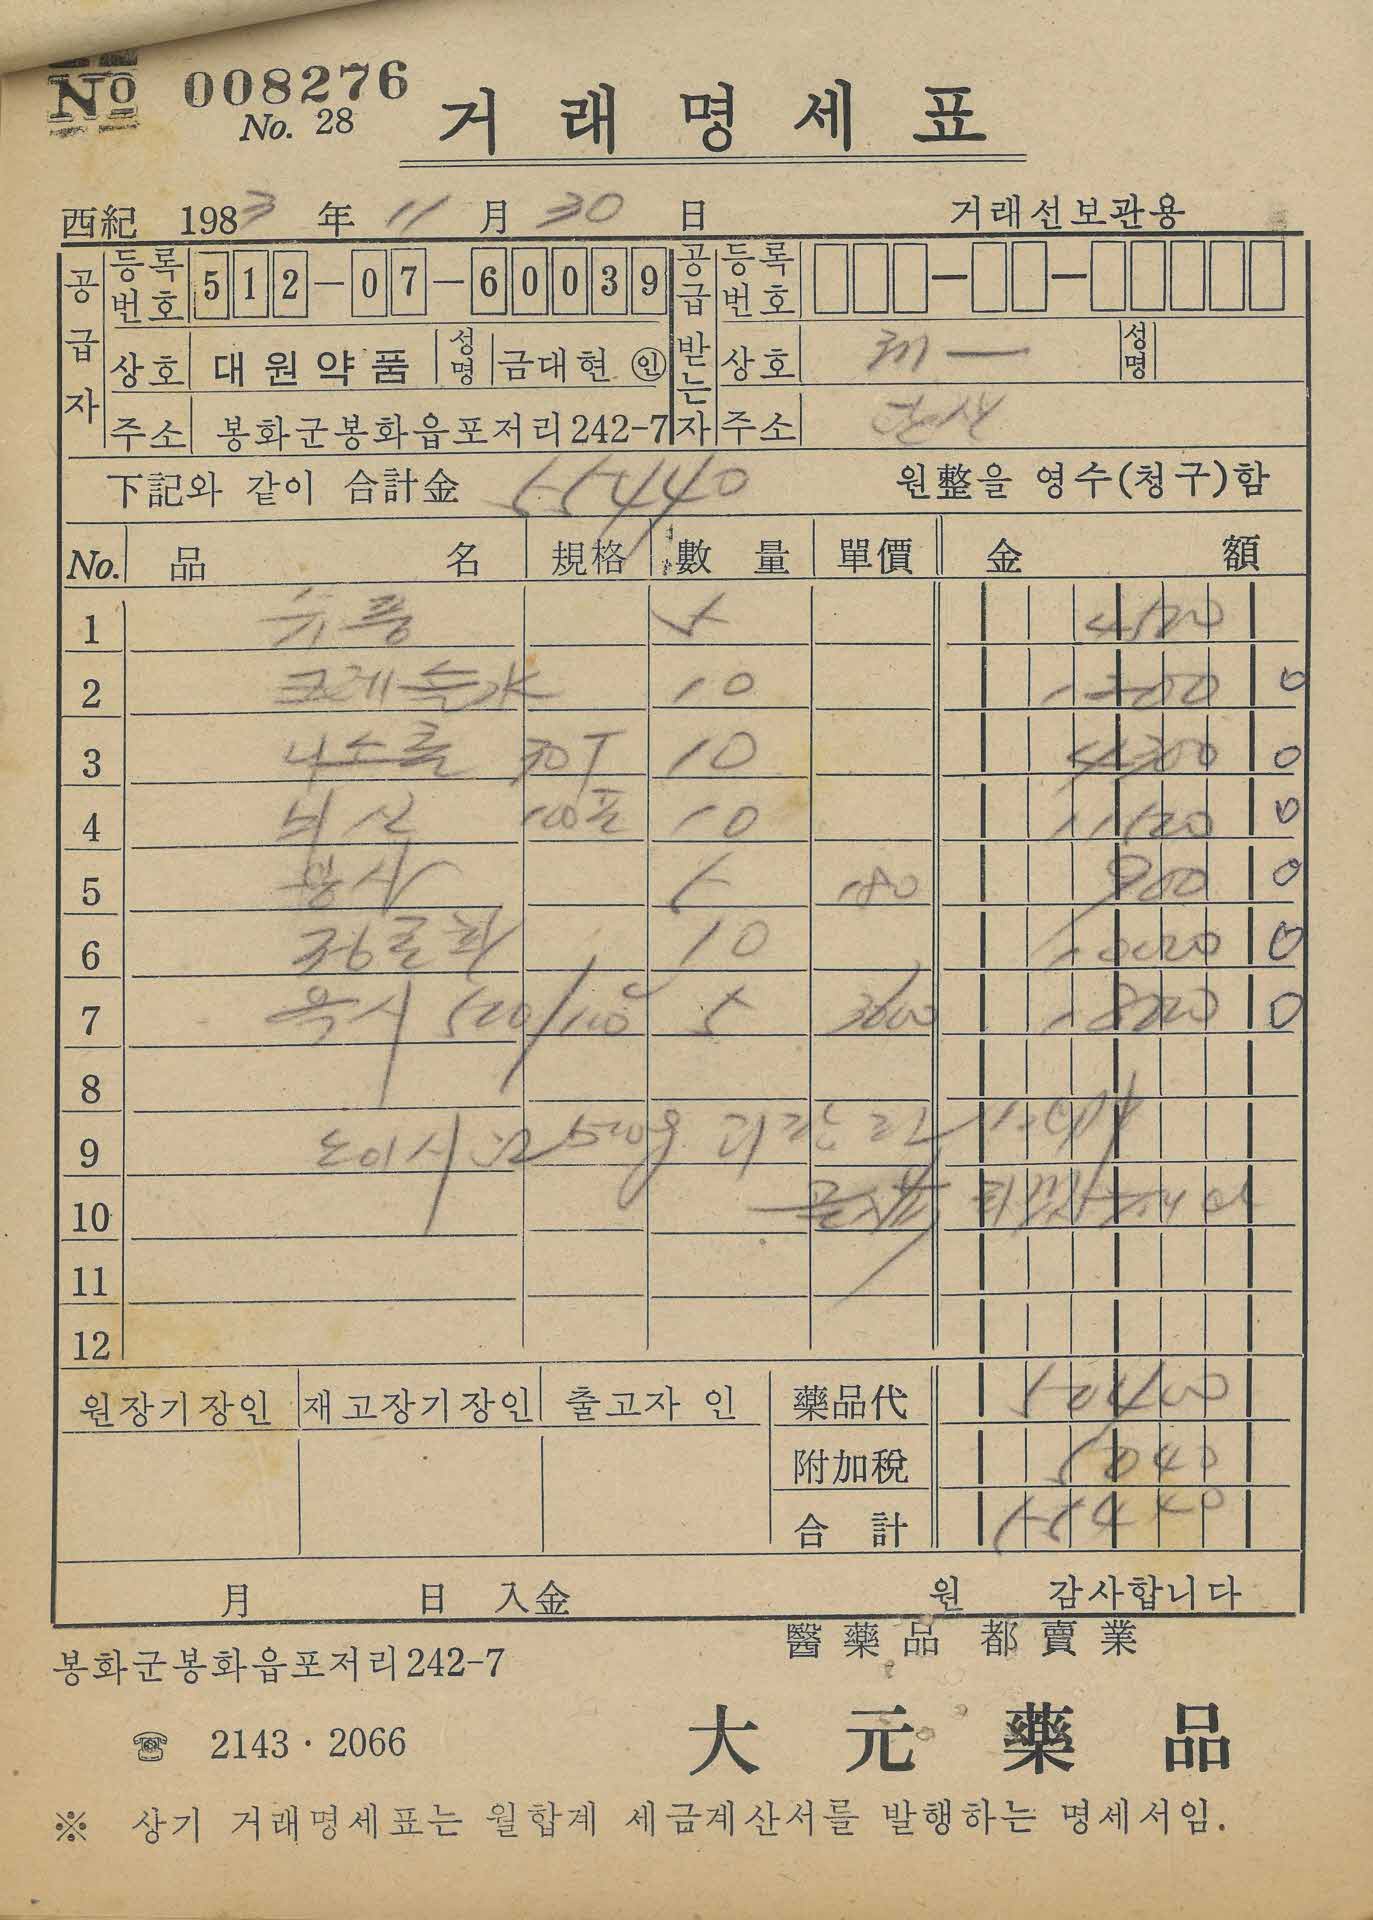 No 008276
No. 28
거래명세표
西紀 1983 年 11 月 30 日 거래선보관용
공급자 등록번호 512-07-60039 공급받는자 등록번호
상호 대원약품 성명 금대현 인 상호 제一 성명
주소 봉화군봉화읍포저리242-7 주소
下記와 같이 合計金 55440 원整을 영수(청구)함
No. 品名 規格 數量 單價 金額
1 5 4500
2 크레속水 10 0
3 나소롤 30T 10 4300 0
4 뇌신 100포 10 11500 0
5 붕사 5 180 900 0
6 정로환 10 0
7 옥시 500/100 5 3600 18000 0
8
9
10
11
12
원장기장인 재고장기장인 출고자 인 藥品代 50400
附加稅 5040
合計 55440
月 日 入金 원 감사합니다
봉화군봉화읍포저리242-7 醫藥品 都賣業
☎ 2143·2066 大元藥品
※ 상기 거래명세표는 월합계 세금계산서를 발행하는 명세서임.